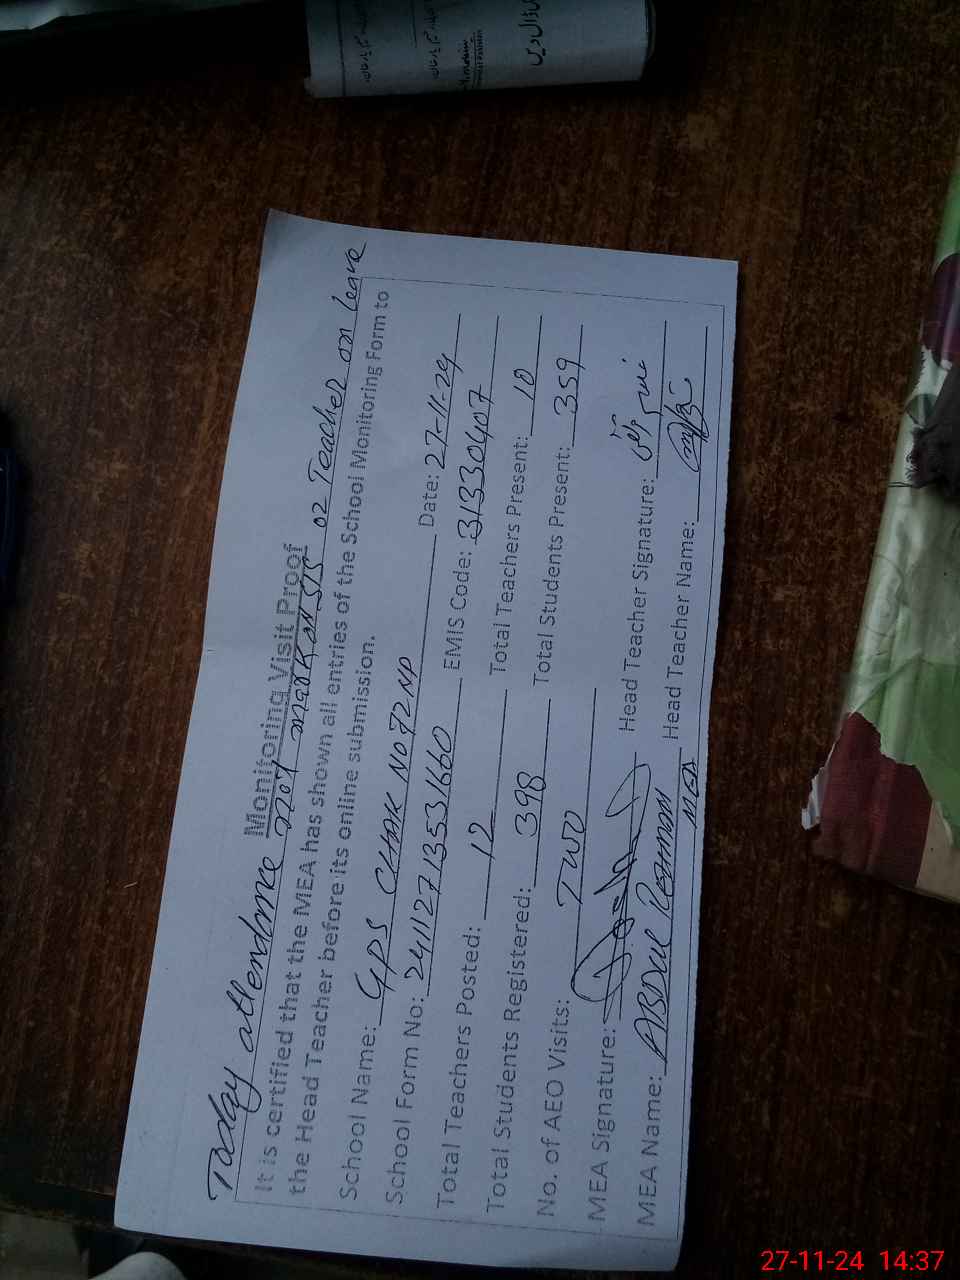 Today attendance not mark on SIS 02 Teacher on leave
Monitoring Visit Proof
It is certified that the MEA has shown all entries of the School Monitoring Form to
the Head Teacher before its online submission.
School Name: GPS CHAK NO72NP Date: 27-11-24
School Form No: 241127135531660 EMIS Code: 31330407
Total Teachers Posted: 12 Total Teachers Present: 10
Total Students Registered: 398 Total Students Present: 359
No. of AEO Visits: TWO
MEA Signature: Head Teacher Signature:
MEA Name: ABDUL Rehman MEA Head Teacher Name:
27-11-24 14:37